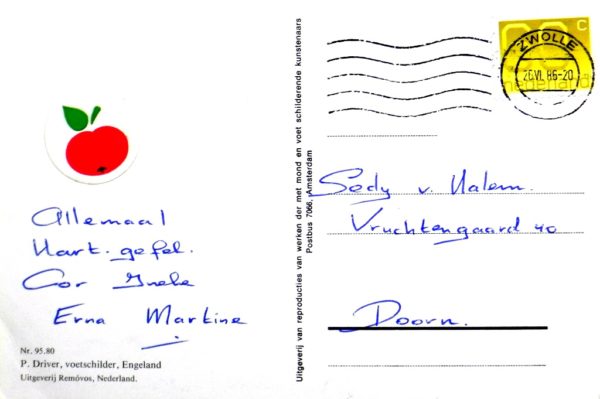 Allemaal
Hart. gefel.
Cor Ineke
Erna Martine
Nr. 95.80
P. Driver, voetschilder, Engeland
Uitgeverij Removos, Nederland.
Uitgeverij van reproducties van werken der met mond en voet schilderende kunstenaars
Postbus 7066, Amsterdam
ZWOLLE
20.VI.86-20
c
nederland
Sody v. Halem.
Vruchtengaard 40
Doorn.